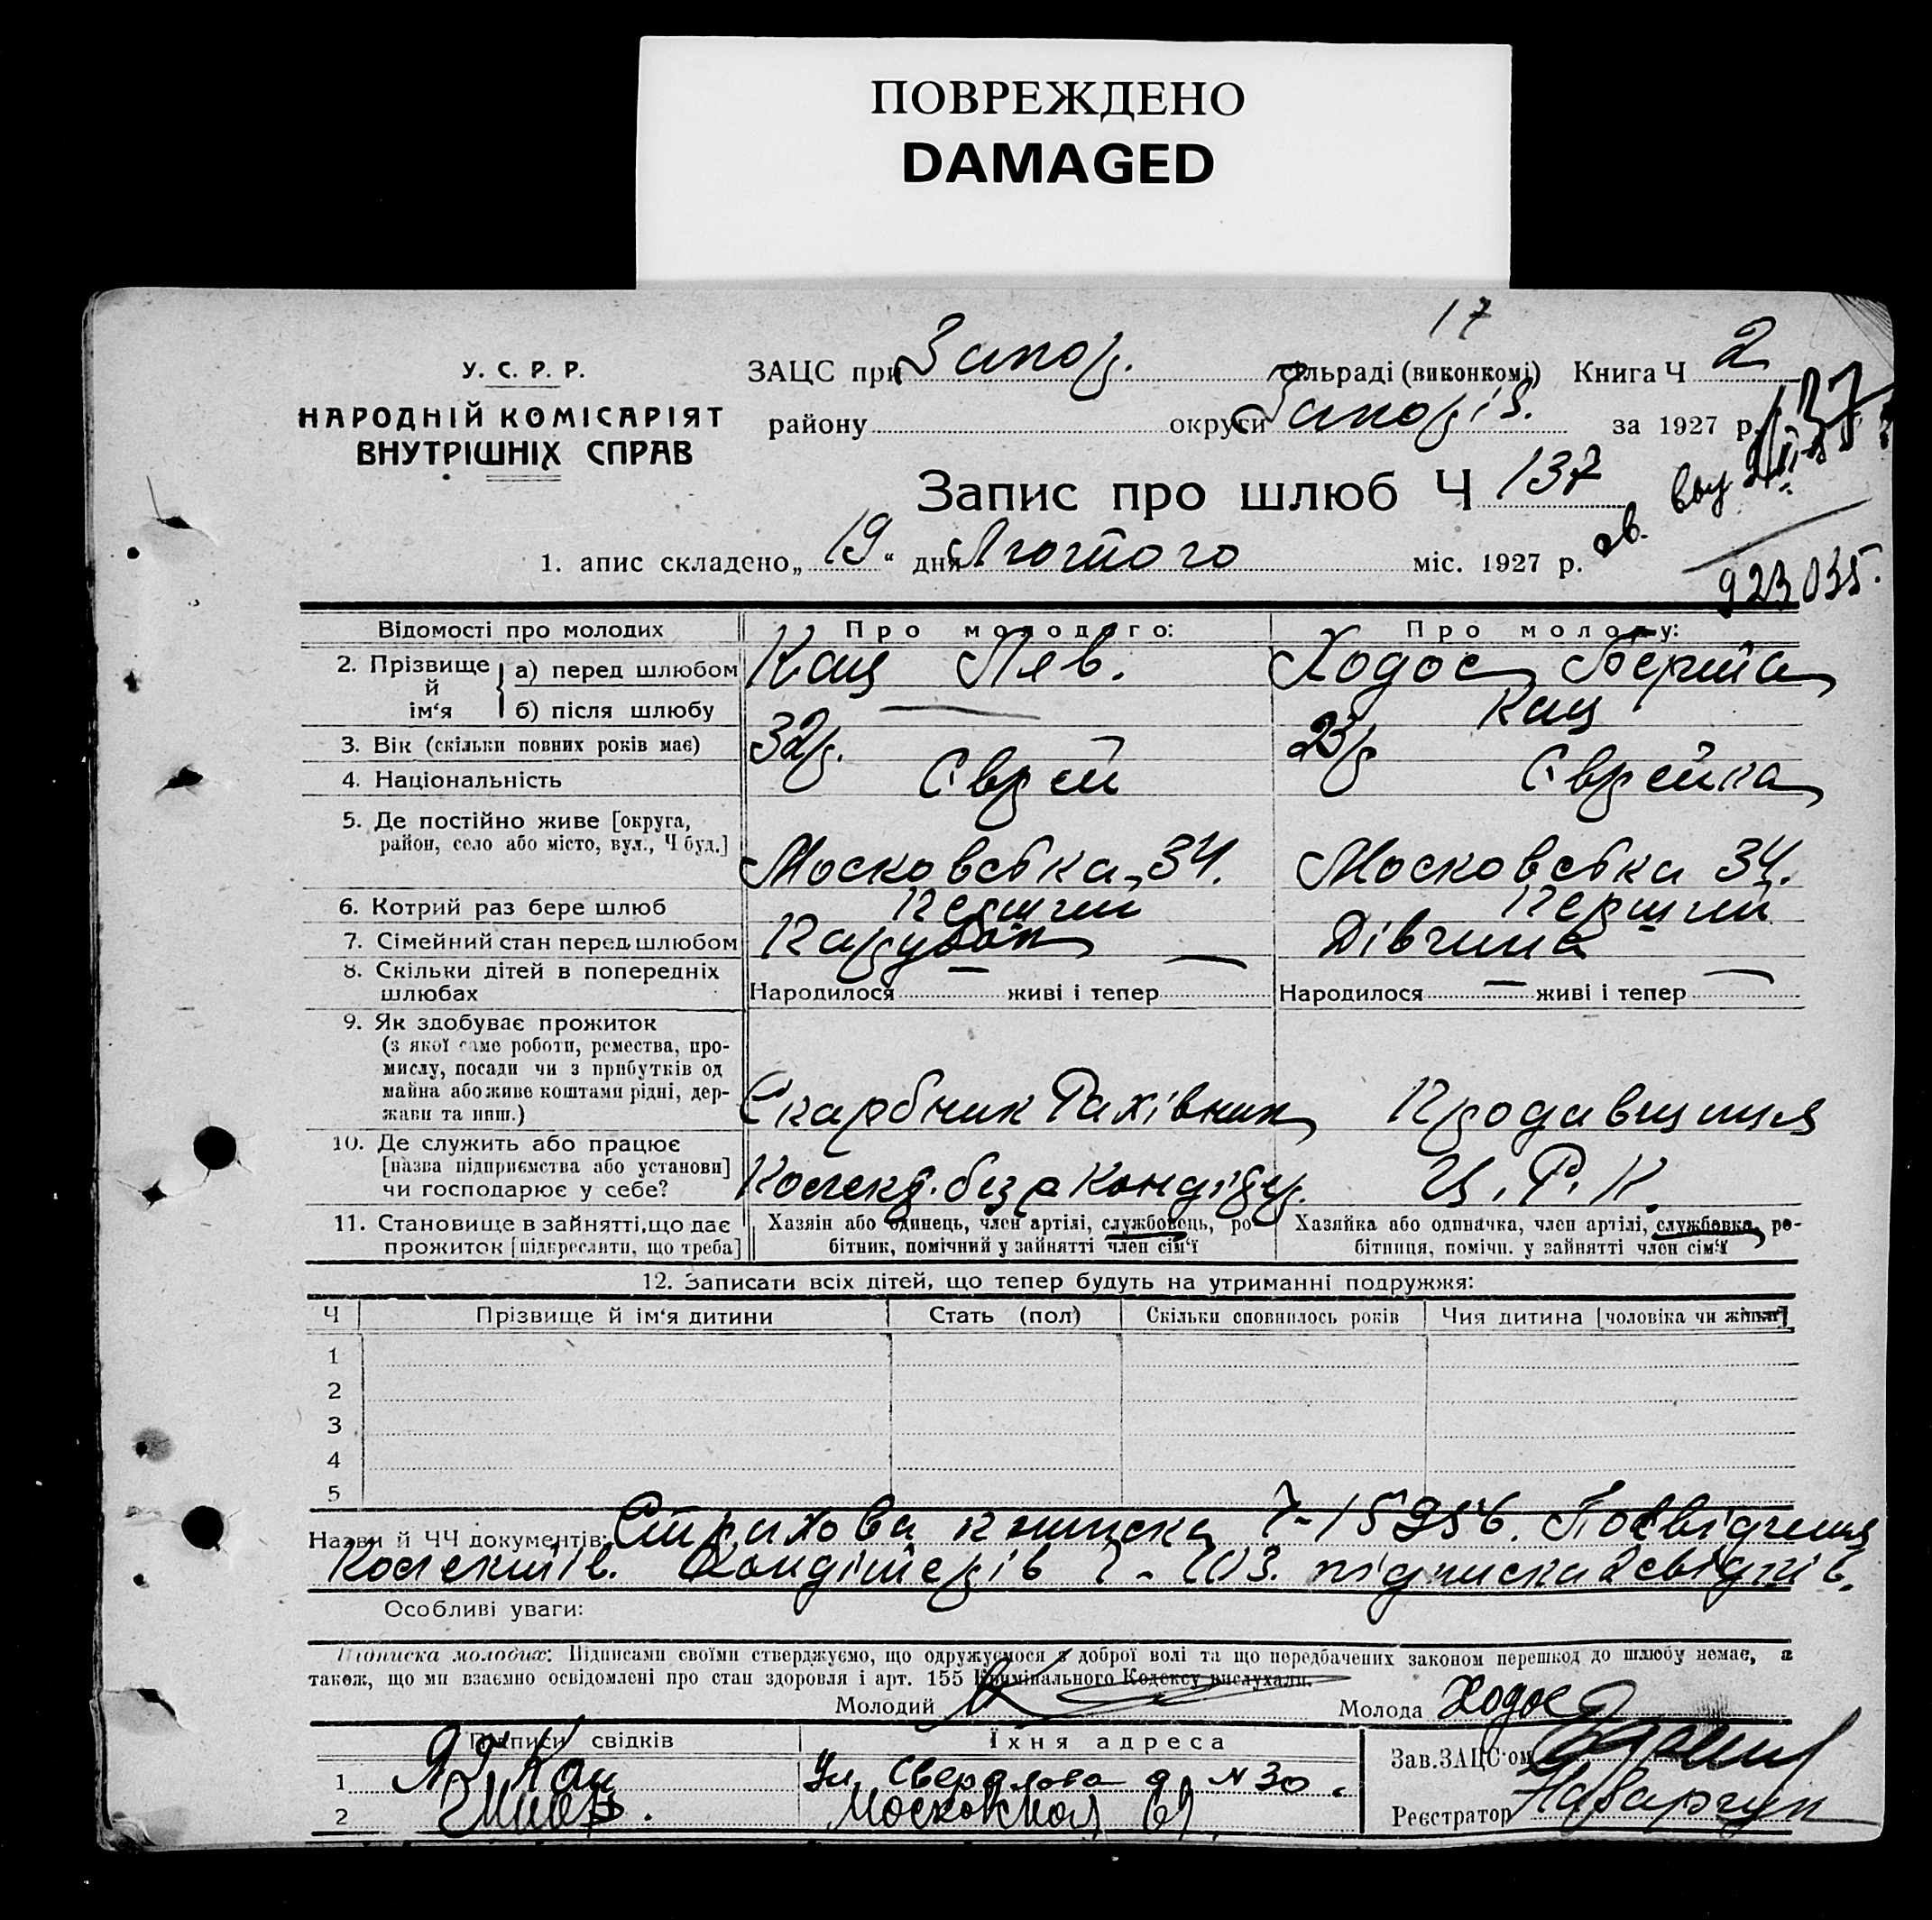 ПОВРЕЖДЕНО
DAMAGED
17
У. С. Р. Р.
НАРОДНІЙ КОМІСАРІЯТ
ВНУТРІШНІХ СПРАВ
ЗАЦС при Запор. сільраді (виконкомі) Книга Ч 2
району округи Запоріз. за 1927 р.
137
Запис про шлюб Ч 137
1. апис складено „19“ дня Лютого міс. 1927 р.
923035.
Відомості про молодих Про молодого: Про молоду:
2. Прізвище й ім‘я а) перед шлюбом Кац Лев. Ходос Берта
б) після шлюбу — Кац
3. Вік (скільки повних років має) 32р. 23р
4. Національність Єврей Єврейка
5. Де постійно живе [округа,
район, село або місто, вул., Ч буд.] Московська 34. Московська 34.
6. Котрий раз бере шлюб Перший Перший
7. Сімейний стан перед шлюбом Парубок Дівчина
8. Скільки дітей в попередніх
шлюбах Народилося — живі і тепер — Народилося — живі і тепер —
9. Як здобуває прожиток
(з якої саме роботи, ремества, про-
мислу, посади чи з прибутків од
майна або живе коштами рідні, дер-
жави та инш.) Скарбник Рахівник Продавщиця
10. Де служить або працює
[назва підприємства або установи]
чи господарює у себе? Колект. безр Кондітер. Ц. Р. К.
11. Становище в зайнятті, що дає Хазяін або одинець, член артілі, службовець, ро- Хазяйка або одиначка, член артілі, службовка, ро-
прожиток [підкреслити, що треба] бітник, помічний у зайнятті член сім‘ї бітниця, помічн. у зайнятті член сім‘ї
12. Записати всіх дітей, що тепер будуть на утриманні подружжя:
Ч Прізвище й ім‘я дитини Стать (пол) Скільки сповнилось років Чия дитина [чоловіка чи жінки]
1
2
3
4
5
Назви й ЧЧ документів: Страхова книжка Ч-15956. Посвідчення
Колектив. Кондітерів Ч- 1113. підписка 2 свідків.
Особливі уваги:
Підписка молодих: Підписами своїми стверджуємо, що одружуємося з доброї волі та що передбачених законом перешкод до шлюбу немає, а
також, що ми взаємно освідомлені про стан здоровля і арт. 155 Кримінального Кодексу вислухали.
Молодий Молода Ходос
Підписи свідків Їхня адреса Зав. ЗАЦС‘ом
1 Кац Ул. Свердлова д. N 30.
2 Московская 69 Реєстратор